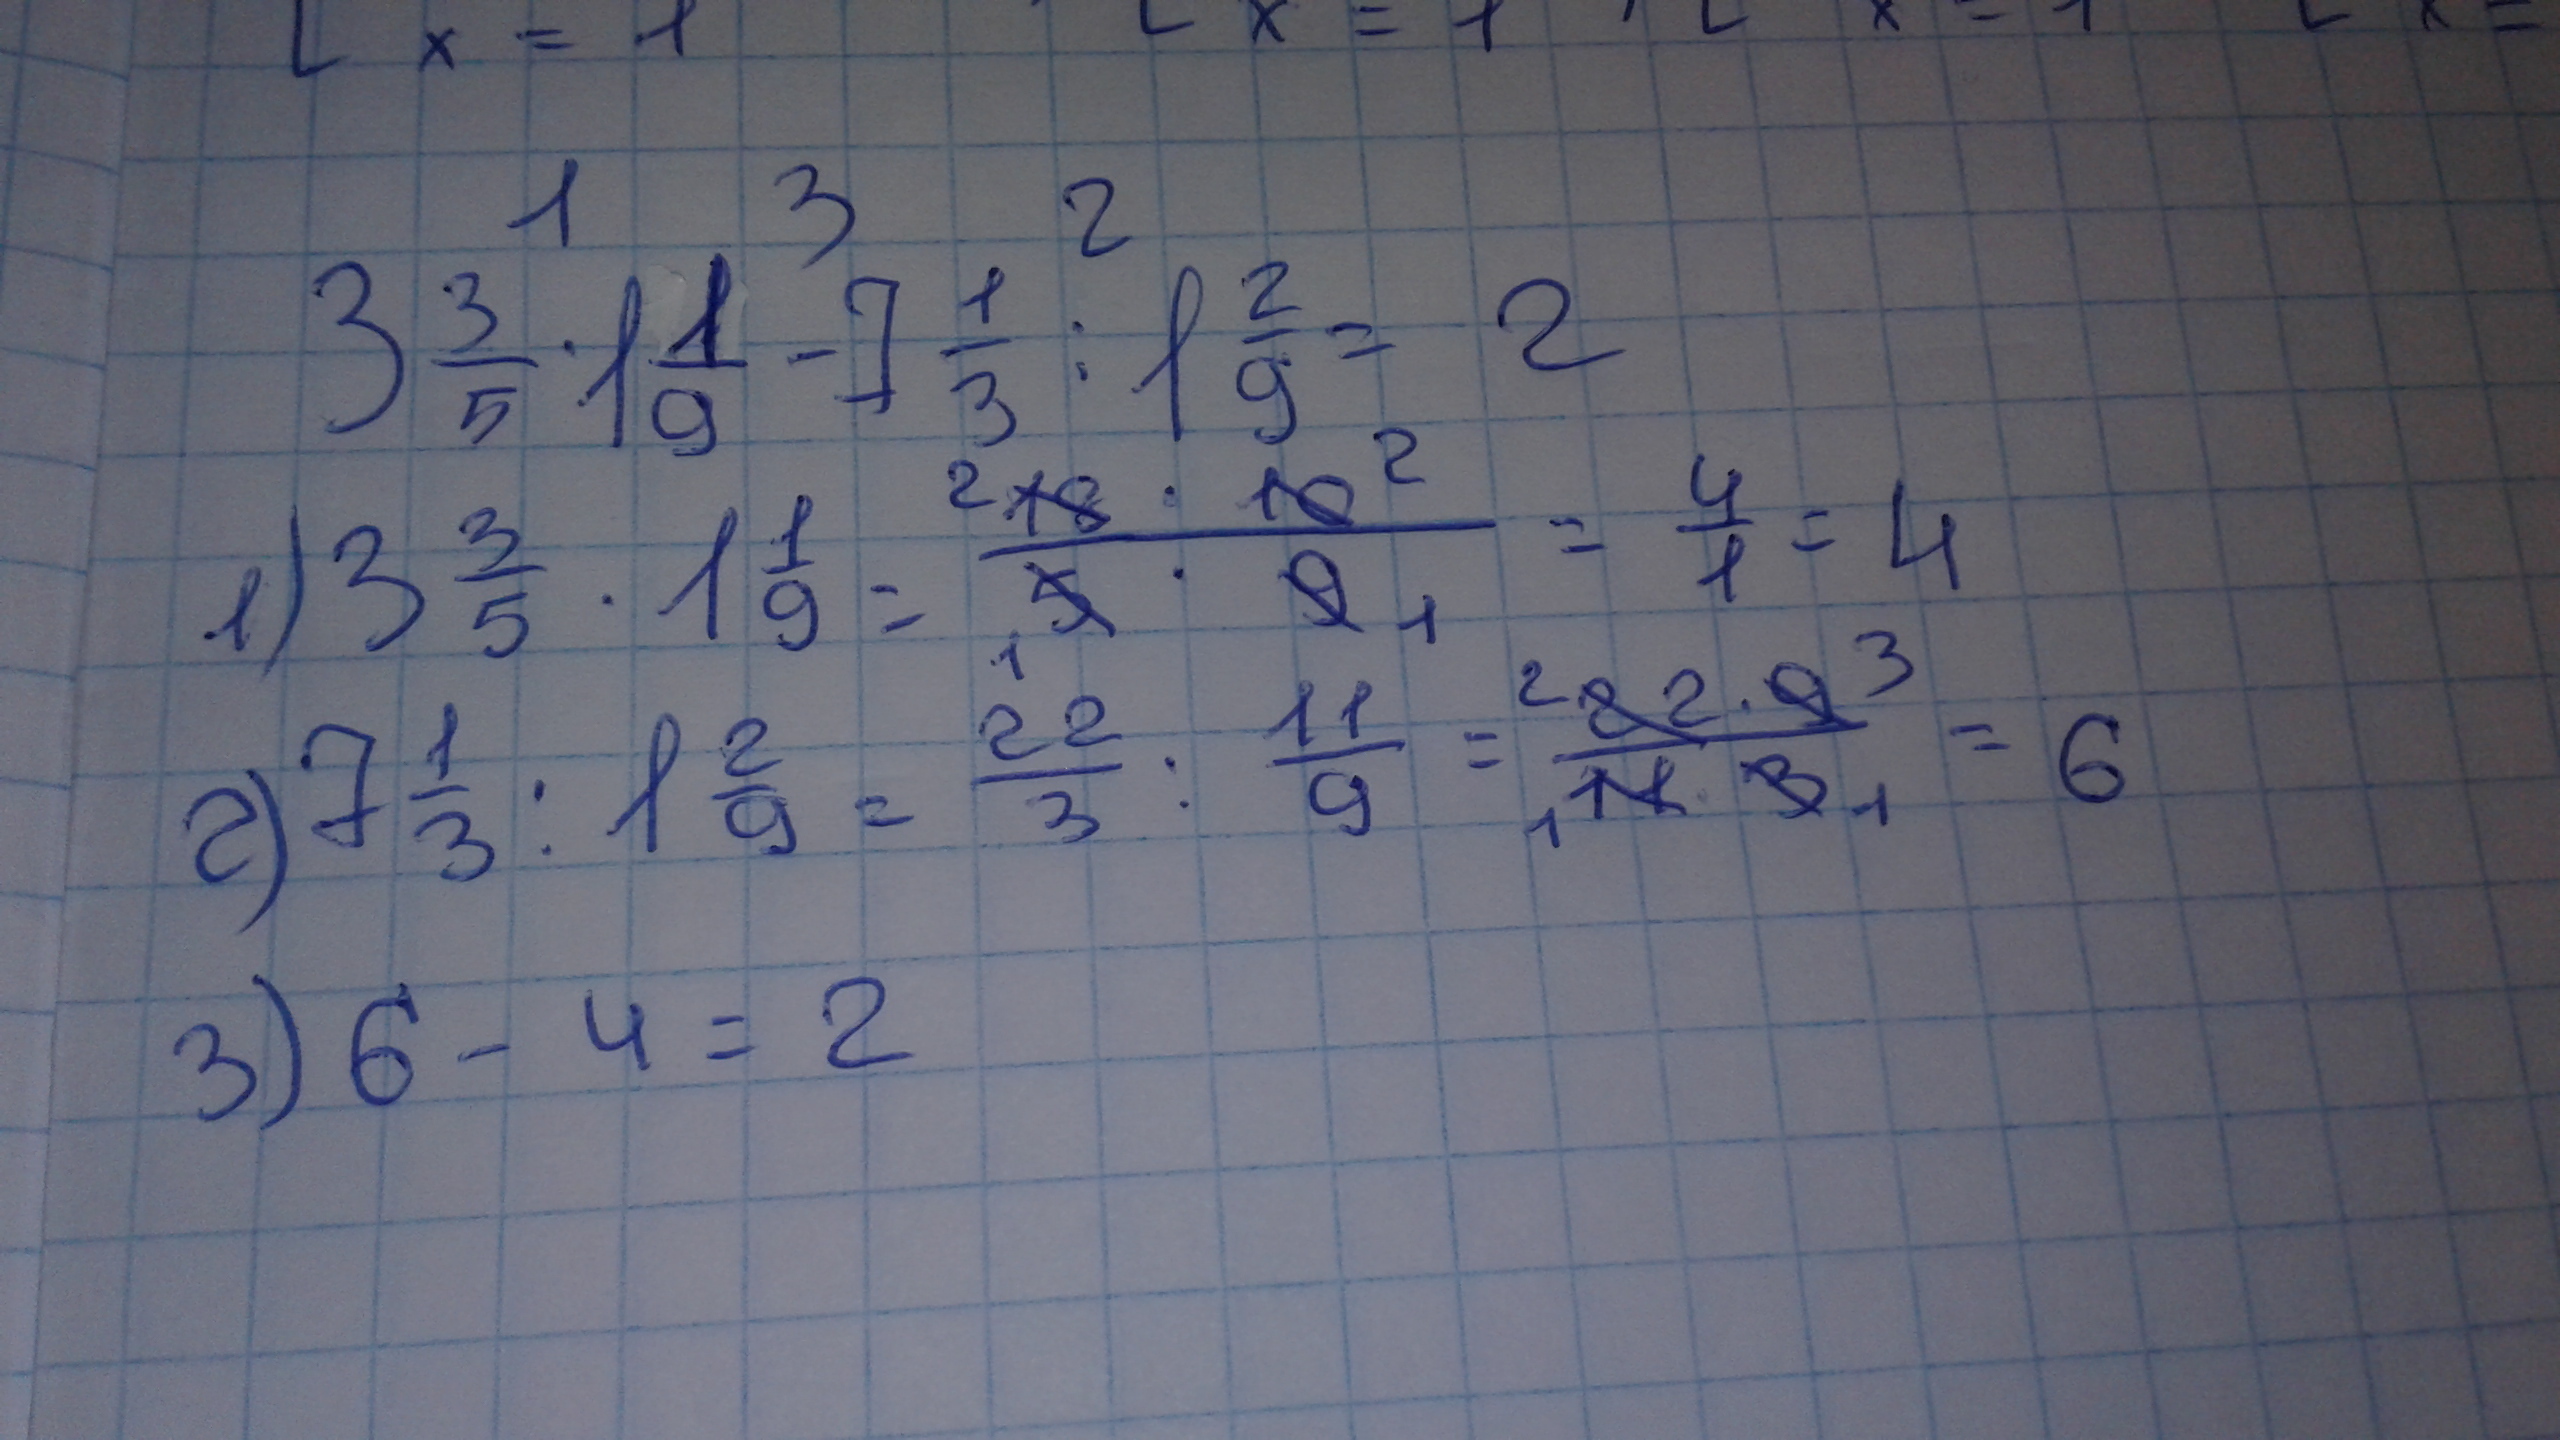 [ x = 1 , [ x = 1 , [ x = 1 [ x =
1 3 2
3 3/5 · 1 1/9 - 7 1/3 : 1 2/9 = 2
1) 3 3/5 · 1 1/9 = 2 18 · 10 2 / 1 5 · 9 1 = 4/1 = 4
2) 7 1/3 : 1 2/9 = 22/3 : 11/9 = 2 22 · 9 3 / 1 11 · 3 1 = 6
3) 6 - 4 = 2